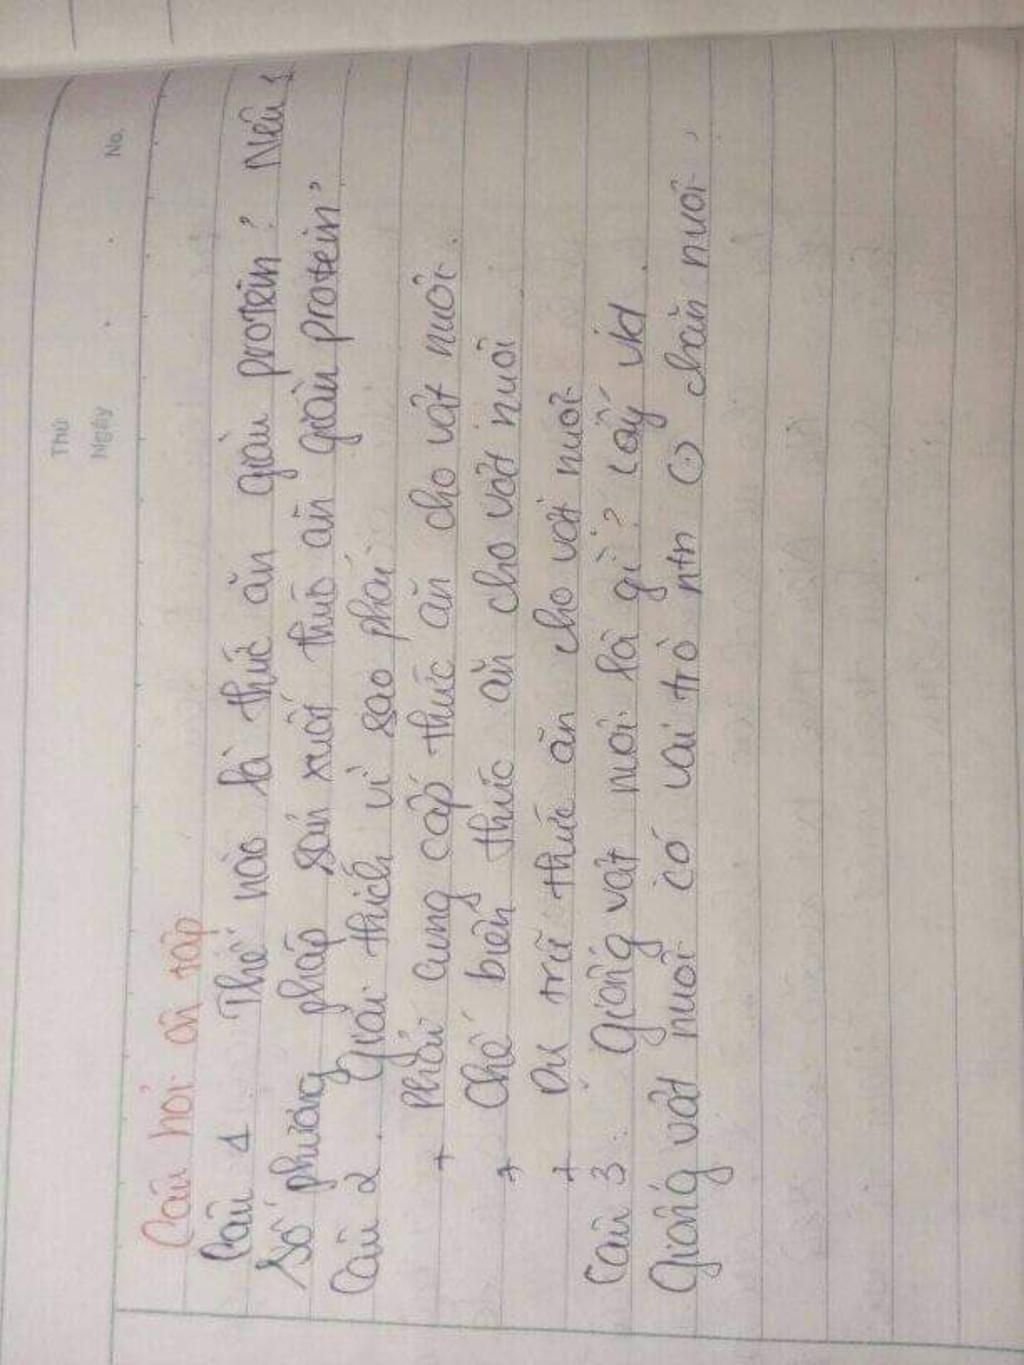 Thứ
Ngày
No.
Câu hỏi ôn tập
Câu 1 Thế nào là thức ăn giàu protein? Nêu 1
số phương pháp sản xuất thức ăn giàu protein?
Câu 2. Giải thích vì sao phải
+ Phải cung cấp thức ăn cho vật nuôi.
+ Chế biến thức ăn cho vật nuôi
+ Dự trữ thức ăn cho vật nuôi.
Câu 3: Giống vật nuôi là gì? Lấy vd.
Giống vật nuôi có vai trò ntn (.) chăn nuôi.